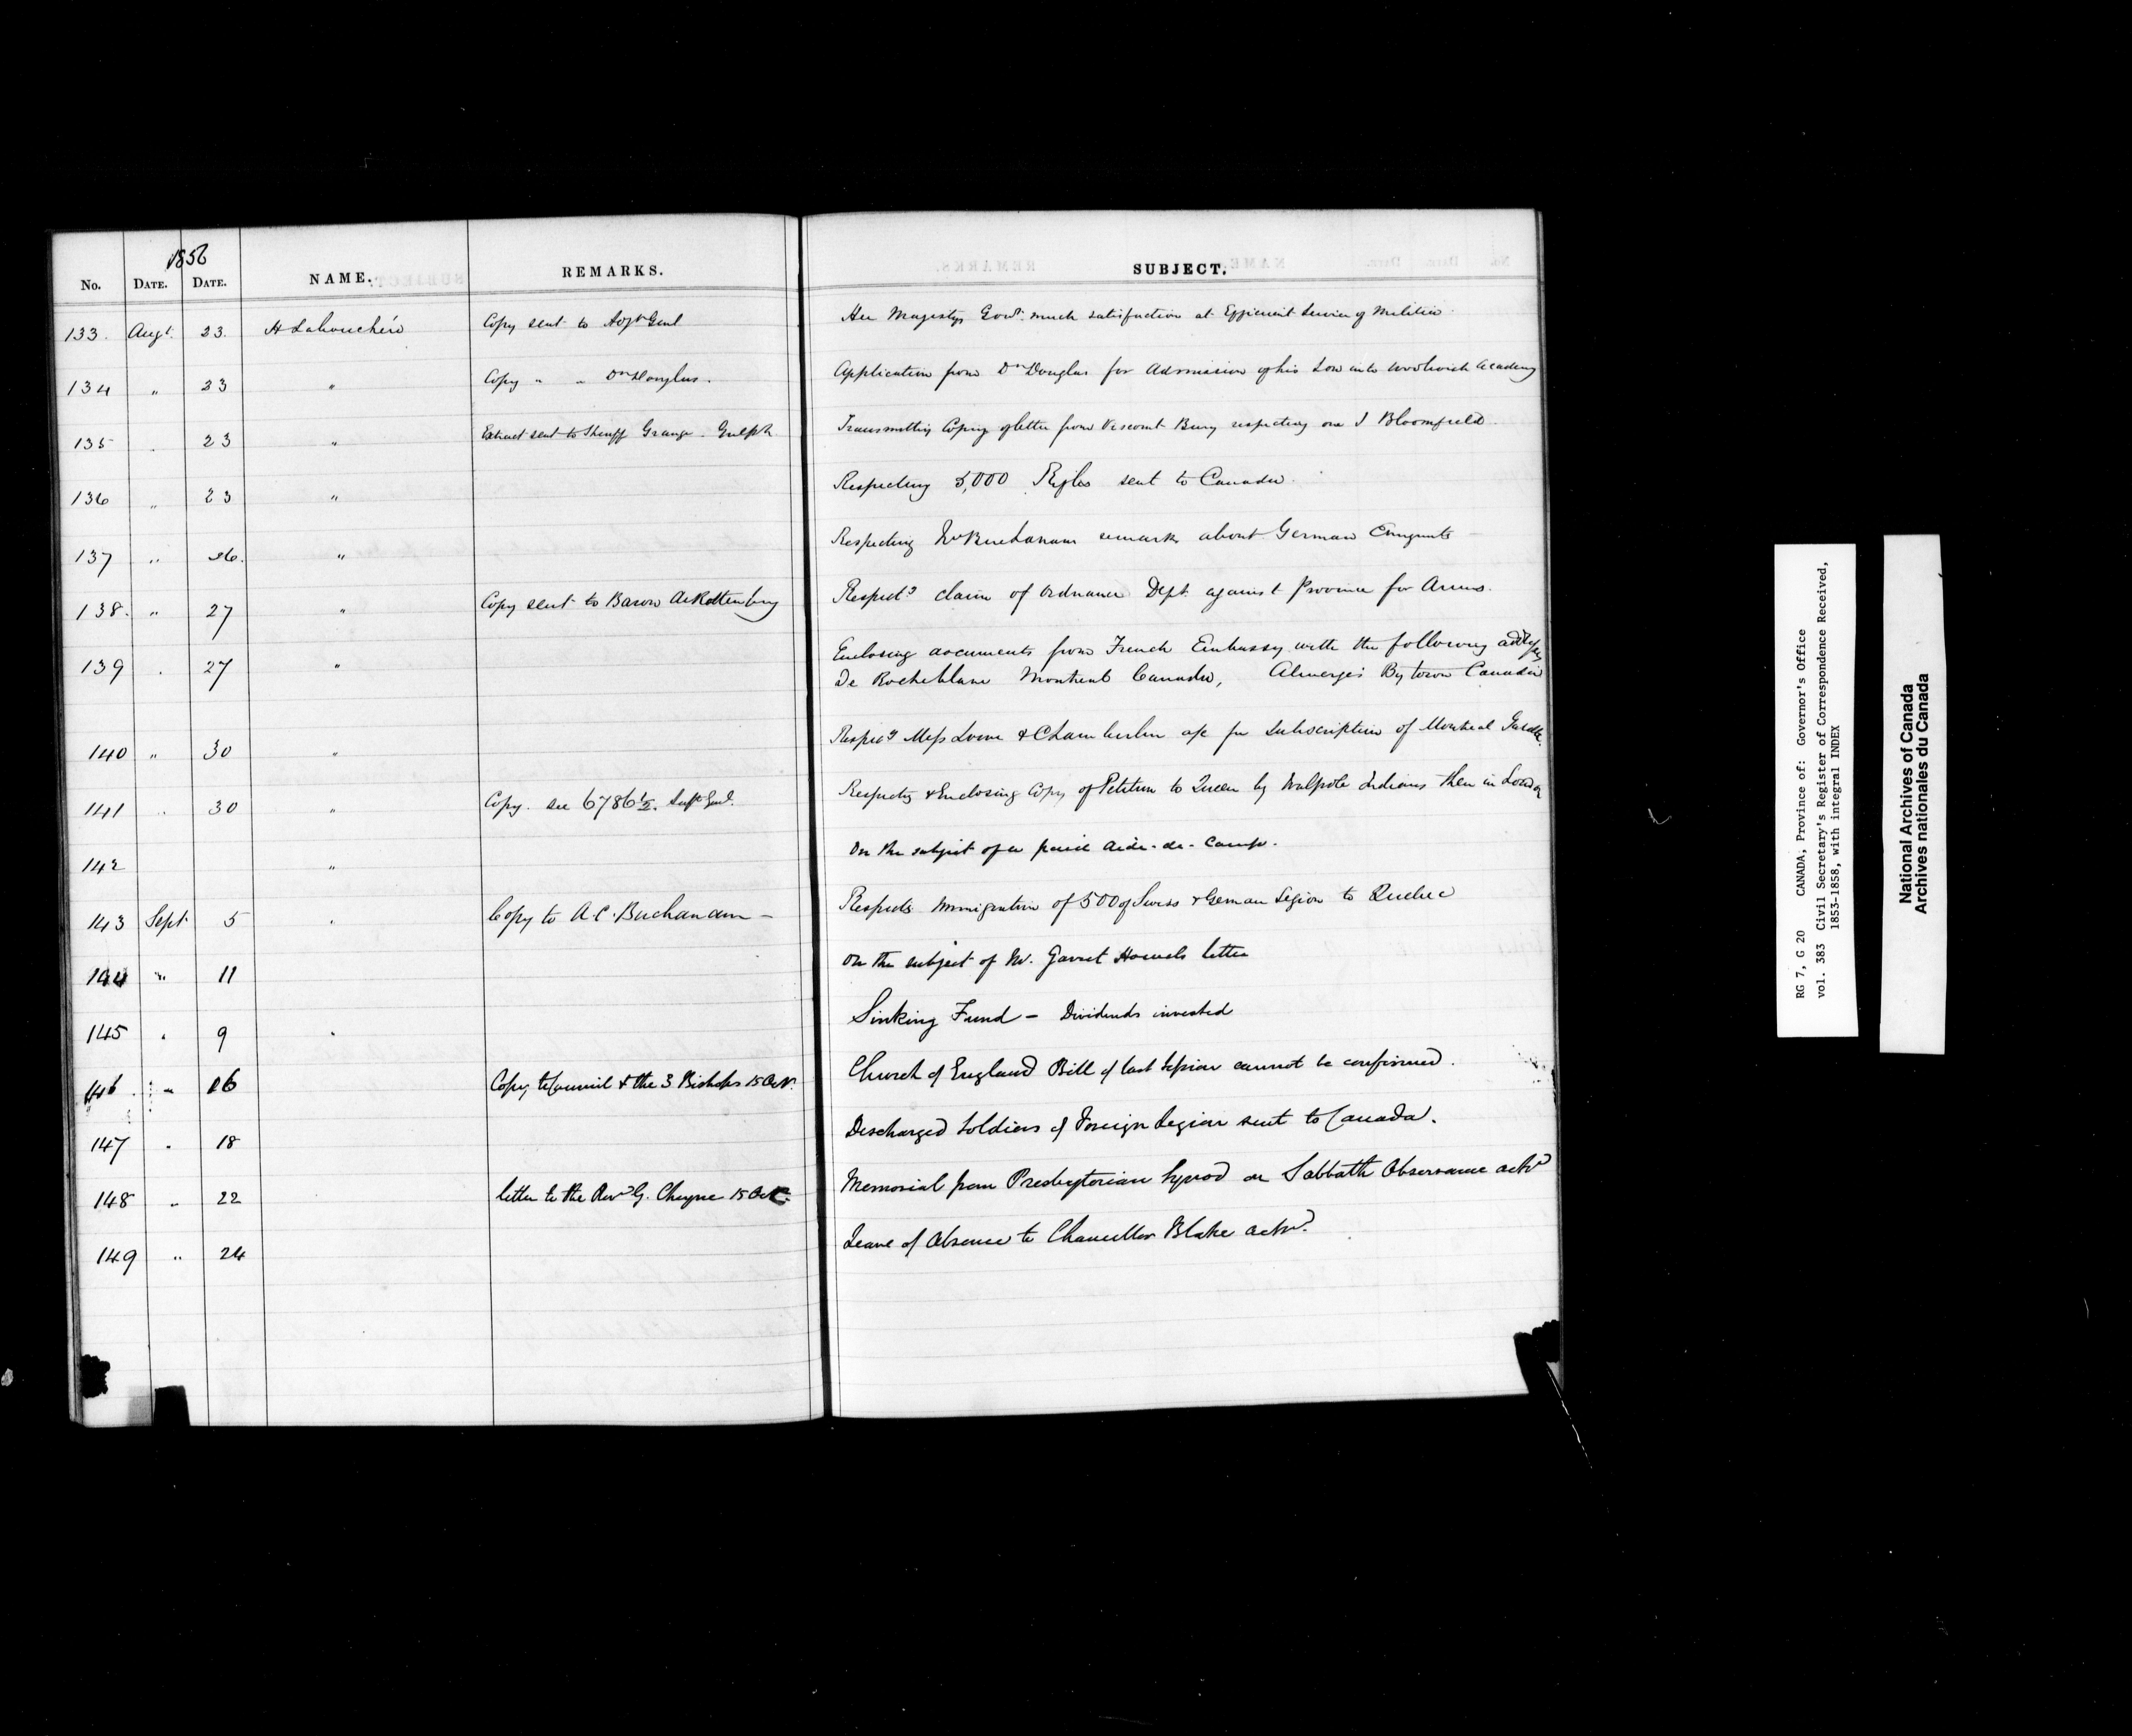 1856
No. DATE. DATE. NAME. REMARKS. SUBJECT.
133. Augt. 23. H Labouchere Copy sent to Adjt Genl Her Majestys Govt. much satisfaction at Efficient Service of Militia
134 " 23 " Copy " " Dr Douglas. Application from Dr Douglas for Admission of his Son into Woolwich Academy
135 . 23 " Extract sent to Sheriff Grange. Guelph Transmitting Copy of letter from Viscount Bury respecting one J Bloomfield
136 " 23 " Respecting 5,000 Rifles sent to Canada.
137 " 26. " Respecting Mr Buchanans remarks about German Emigrants
138. " 27 " Copy sent to Baron de Rottenburg Respectg claim of Ordnance Dept. against Province for Arms.
139 . 27 " Enclosing documents from French Embassy with the following
De Rocheblave Montreal Canada, Bytown Canada
140 " 30 " Respectg Mess Lowe & Chamberlin for Subscription of Montreal Gazette.
141 . 30 " Copy. see 6786 Supt Genl. Respectg & Enclosing Copy of Petition to Queen by Walpole Indians then in London
142 " On the subject of a Aide-de-Camp.
143 Sept 5 . Copy to A.C. Buchanan - Respectg Immigration of 500 of Swiss & German Legion to Quebec
144 " 11 On the subject of Mr. Garret letter
145 . 9 . Sinking Fund - Dividends invested
146 . " 16 Copy to Council & the 3 Bishops 15 Oct. Church of England Bill of last Session cannot be confirmed.
147 . 18 Discharged Soldiers of Foreign Legion sent to Canada.
148 " 22 letter to the Revd G. Cheyne 15 Oct. Memorial from Presbyterian Synod on Sabbath Observance ackd
149 " 24 Leave of Absence to Chancellor Blake ackd.
RG 7, G 20 CANADA, Province of: Governor's Office
vol. 383 Civil Secretary's Register of Correspondence Received,
1853-1858, with integral INDEX
National Archives of Canada
Archives nationales du Canada